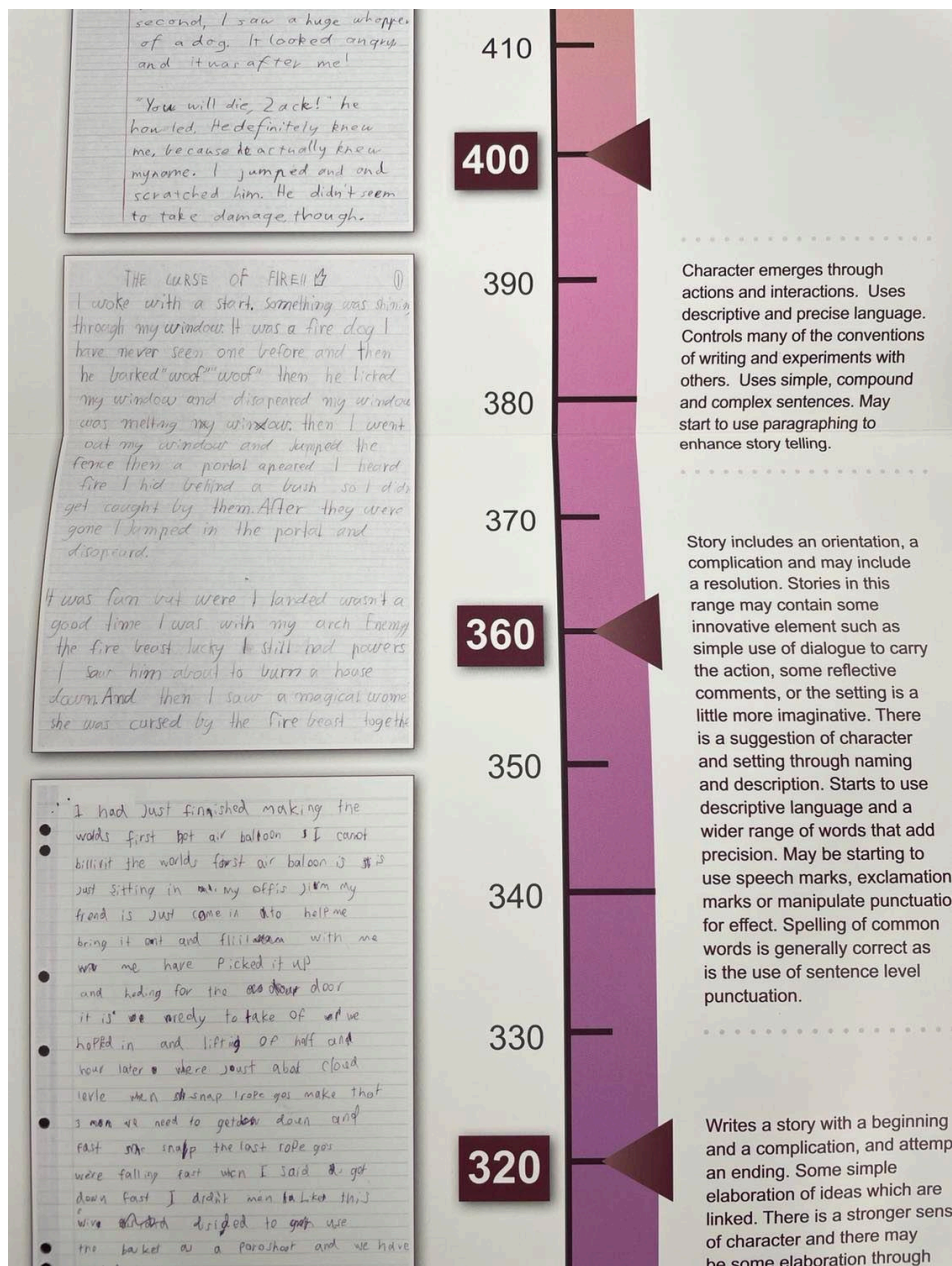 second, I saw a huge whopper
of a dog. It looked angry
and it was after me!
"You will die, Zack!" he
howled. He definitely knew
me, because he actually knew
my name. I jumped and and
scratched him. He didn't seem
to take damage, though.
THE CURSE OF FIRE!! ①
I woke with a start. something was shining
through my window. It was a fire dog I
have never seen one before and then
he barked "woof" "woof" then he licked
my window and disapeared my window
was melting my window. then I went
out my window and jumped the
fence then a portal apeared I heard
fire I hid behind a bush so I didn
get caught by them. After they were
gone I Jumped in the portal and
disapeard.
It was fun but were I landed wasn't a
good time I was with my arch Enemy
the fire beast lucky I still had powers
I saw him about to burn a house
down. And then I saw a magical wome
she was cursed by the fire beast togethe
I had Just finished making the
walds first hot air balloon I canot
billivit the worlds forst air baloon is is
Just sitting in my offis Jim my
frend is Just come in to help me
bring it out and with me
me have Picked it up
and heding for the door
it is reedy to take of we
hopped in and lifting of half and
hour later where joust abat cloud
levle when snap 1 rope gos make that
3 man we need to get down and
fast snapp the last rope gos
were falling fast when I said got
down fast I didn't men like this
disided to use
the basket as a paroshoot and we have
410
400
390
380
370
360
350
340
330
320
Character emerges through
actions and interactions. Uses
descriptive and precise language.
Controls many of the conventions
of writing and experiments with
others. Uses simple, compound
and complex sentences. May
start to use paragraphing to
enhance story telling.
Story includes an orientation, a
complication and may include
a resolution. Stories in this
range may contain some
innovative element such as
simple use of dialogue to carry
the action, some reflective
comments, or the setting is a
little more imaginative. There
is a suggestion of character
and setting through naming
and description. Starts to use
descriptive language and a
wider range of words that add
precision. May be starting to
use speech marks, exclamation
marks or manipulate punctuatio
for effect. Spelling of common
words is generally correct as
is the use of sentence level
punctuation.
Writes a story with a beginning
and a complication, and attemp
an ending. Some simple
elaboration of ideas which are
linked. There is a stronger sens
of character and there may
be some elaboration through